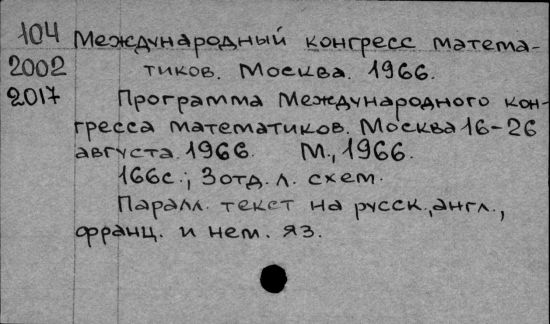 104 Международный конгресс матема-
2002 тиков. Москва. 1966.
2017 Программа Международного кон-
гресса математиков. Москва 16-26
августа 1966. М., 1966.
166с.; 3отд. л. схем.
Паралл. текст на русск., англ.,
франц. и нем. яз.